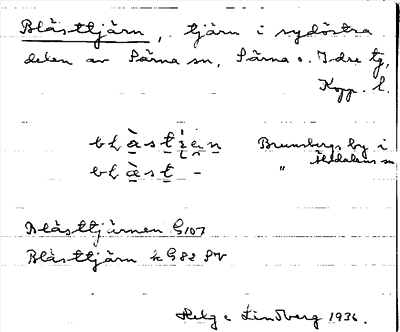 Blåsttjärn, tjärn i sydöstra
delen av Särna sn, Särna o. Idre tg,
Kopp. l.
Brunsbergs by i
Älvdalens sn
"
Blåsttjärnen G107
Blåsttjärn k G82 SV
Helge Lindberg 1936.